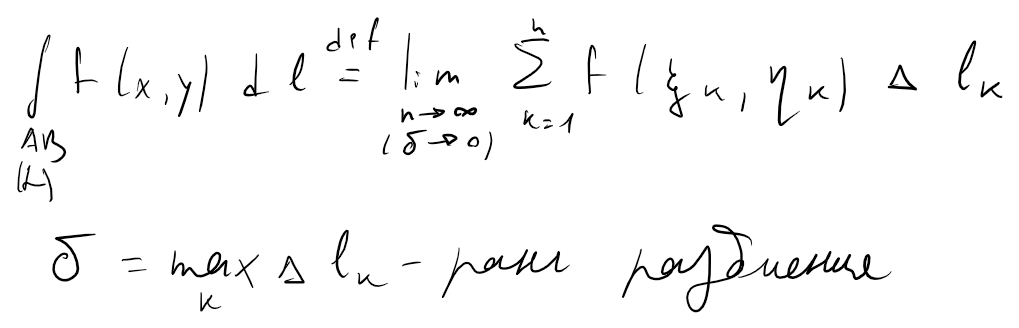 ∫_{AB (L)} f(x,y) dl \overset{def}{=} lim_{n→∞ (δ→0)} Σ_{k=1}^{n} f(ξ_k, η_k) Δ l_k
δ = max_k Δ l_k - ранг разбиения